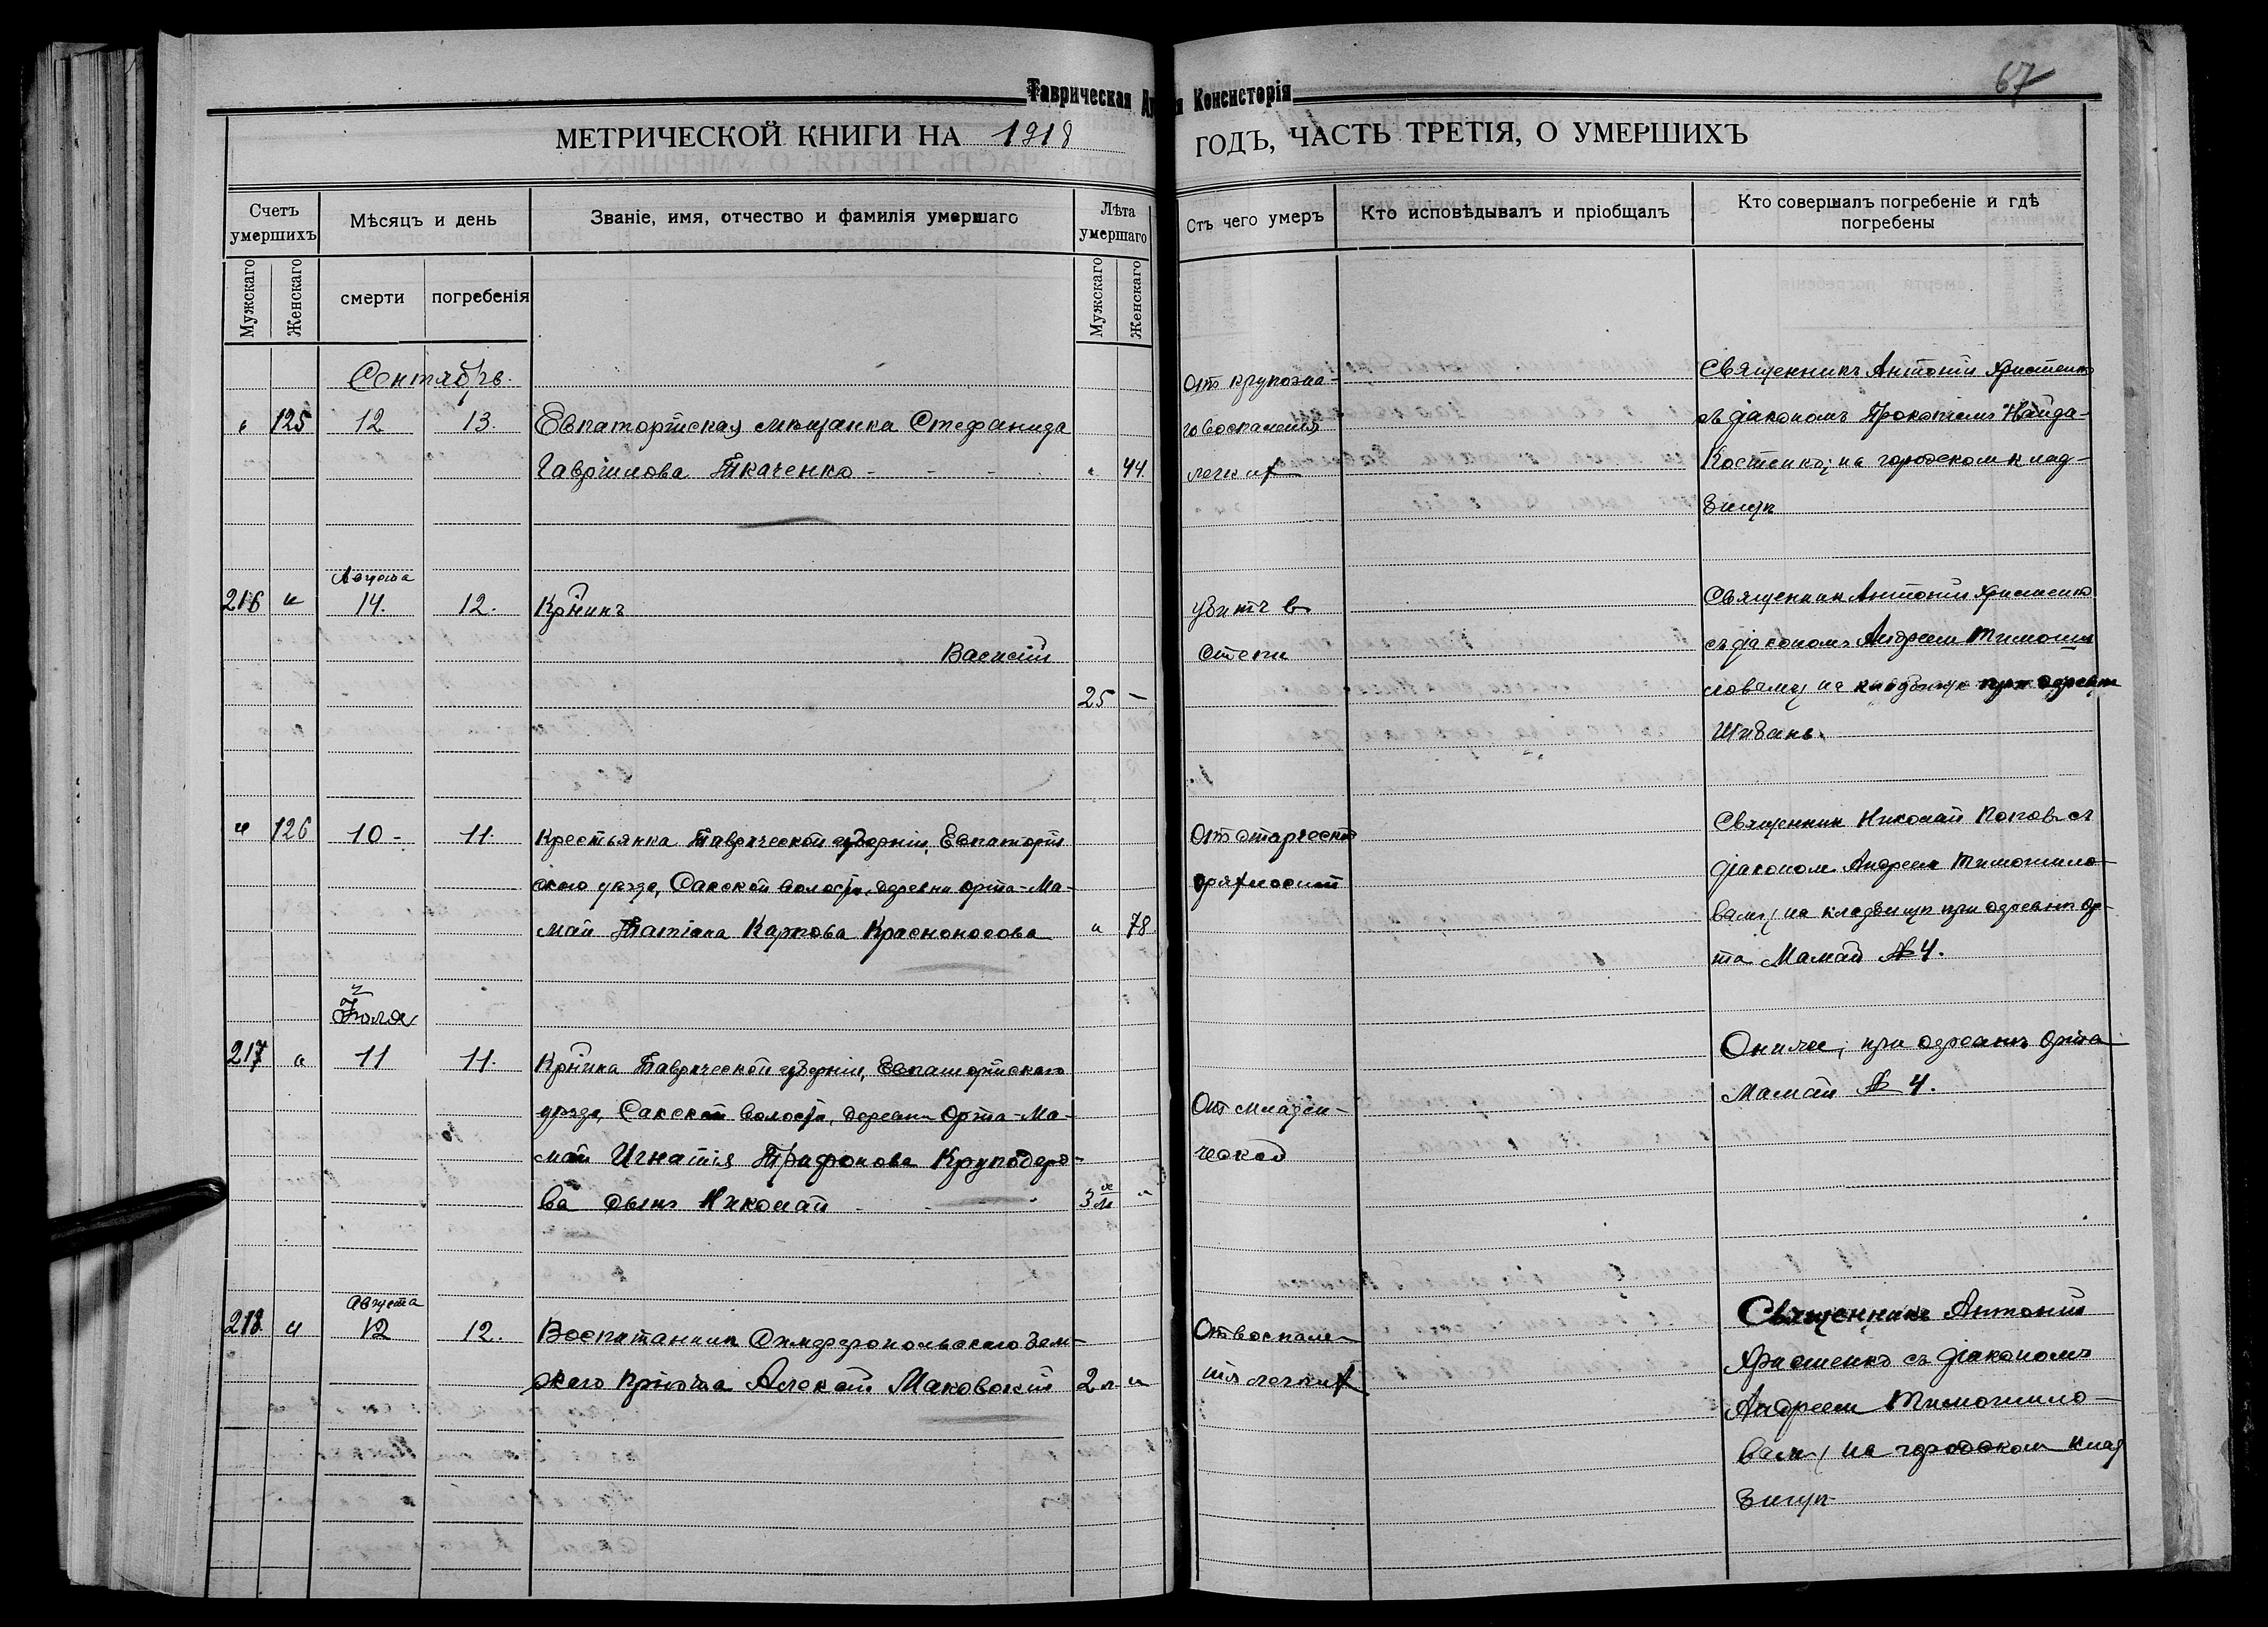 67
Таврическая
Консисторія
МЕТРИЧЕСКОЙ КНИГИ НА 1918
ГОДЪ, ЧАСТЬ ТРЕТІЯ, О УМЕРШИХЪ
Счетъ умершихъ
Мѣсяцъ и день
Званіе, имя, отчество и фамилія умершаго
Лѣта умершаго
Отъ чего умеръ
Кто исповѣдывалъ и пріобщалъ
Кто совершалъ погребеніе и гдѣ погребены
Мужскаго
Женскаго
смерти
погребенія
Мужскаго
Женскаго
Сентябрь.
" 125 12 13. Евпаторійская мѣщанка Стефанида
Гавріилова Ткаченко - - - " 44.
От крупозна-
го воспаленія
легких
Священникъ Антоній Христенко
съ діакономъ Прокопіемъ Найда-
Костенко; на городском клад-
бищѣ
Августа
216 " 14. 12. Кр-нинъ
Василій
25 -
убитъ в
степи
Священник Антоній Христенко
съ діакономъ Андреем Тимоши
ловымъ; на кладбищѣ при деревнѣ
Шибань.
" 126 10 - 11. Крестьянка Таврической губерніи, Евпаторій
скаго уѣзда, Сакской волости, деревни Орта-Ма-
май Татіана Карпова Красноносова " 78
От старческой
дряхлости
Священник Николай Попов съ
діаконом Андреем Тимошило-
вымъ; на кладбищѣ при деревнѣ Ор-
та Мамай № 4.
Іюля
217 " 11 11. Кр-нина Таврической губерніи, Евпаторійскаго
уѣзда, Сакской волости, деревни Орта-Ма-
май Игнатія Трифонова Круподеро-
ва сынъ Николай - - - 3 м "
От младен-
ческой
Они же; при деревнѣ Орта
Мамай № 4.
Августа
218 " 12 12. Воспитанник Симферопольскаго Зем-
скаго Пріюта Алексѣй Маковскій 2 л "
От воспале-
нія легких
Священникъ Антоній
Христенко съ діакономъ
Андреем Тимошило-
вымъ; на городском клад
бищѣ